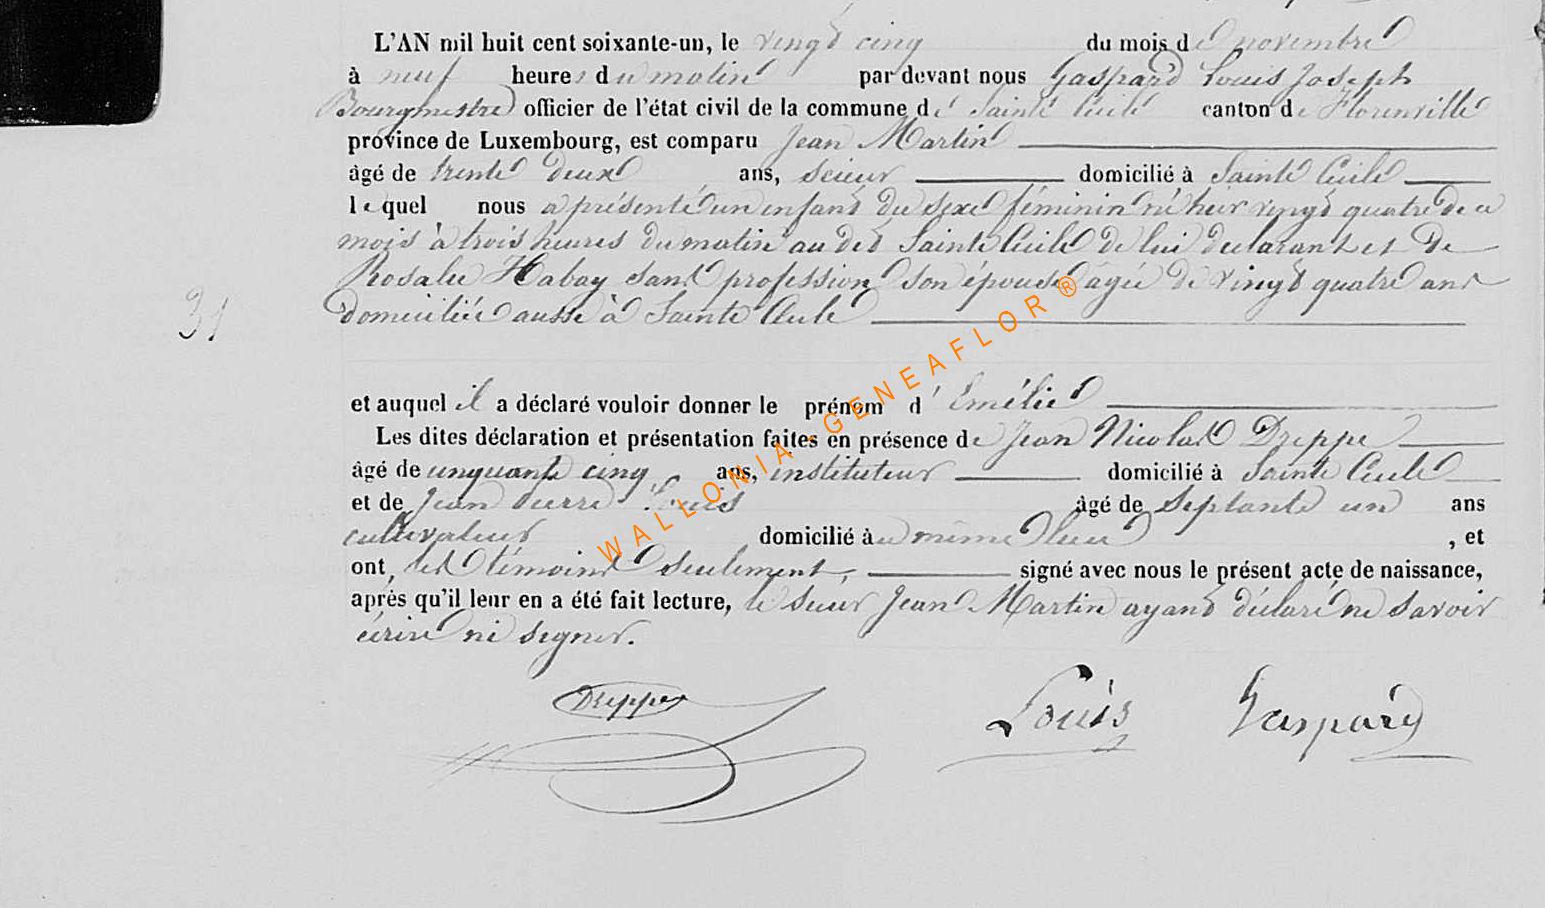 L'AN mil huit cent soixante-un, le vingt cinq du mois de novembre
à neuf heures du matin par devant nous Gaspard Louis Joseph
Bourgmestre officier de l'état civil de la commune de Sainte Cécile canton de Florenville
province de Luxembourg, est comparu Jean Martin
âgé de trente deux ans, scieur domicilié à Sainte Cécile
lequel nous a présenté un enfant du sexe féminin né hier vingt quatre de ce
mois à trois heures du matin au dit Sainte Cécile de lui déclarant et de
Rosalie Habay sans profession son épouse âgée de vingt quatre ans
domiciliée aussi à Sainte Cécile
31
et auquel il a déclaré vouloir donner le prénom d'Emélie
Les dites déclaration et présentation faites en présence de Jean Nicolas Dreppe
âgé de cinquante cinq ans, instituteur domicilié à Sainte Cécile
et de Jean Pierre Louis âgé de septante un ans
cultivateur domicilié au même lieu , et
ont, les témoins seulement, signé avec nous le présent acte de naissance,
après qu'il leur en a été fait lecture, le sieur Jean Martin ayant déclaré ne savoir
écrire ni signer.
Dreppe Louis Gaspard
WALLONIA-GENEAFLOR®